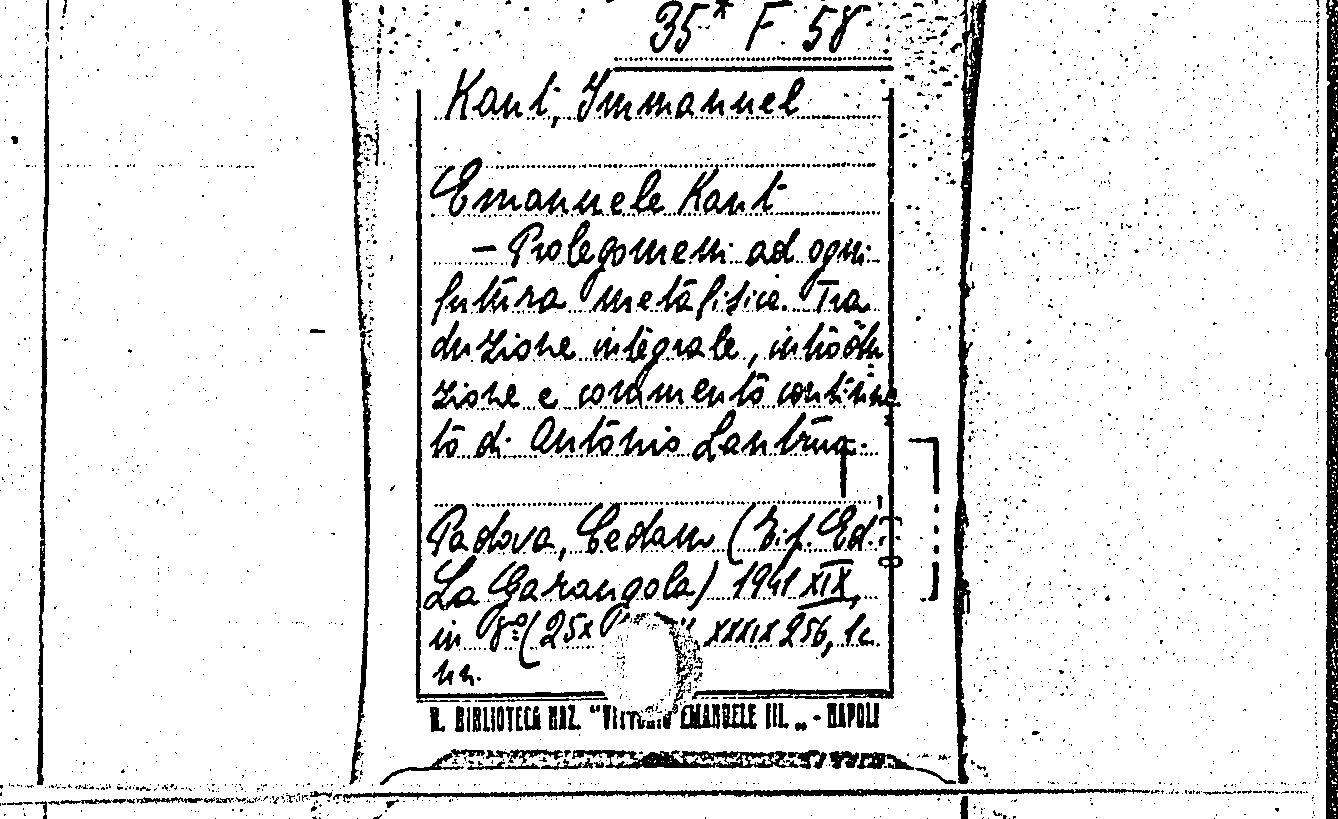 35* F. 58
Kant, Immanuel
Emanuele Kant
- Prolegomeni ad ogni
futura metafisica. Tra
duzione integrale, introdu
zione e commento contenu
to di Antonio Lantrua.
Padova, Cedam (Tip. Ed.
La Garangola) 1941 XIX,
in 8º (25x XXXIX 256, 1c
nn.
R. BIBLIOTECA NAZ. "VITTORIO EMANUELE III. „ - NAPOLI